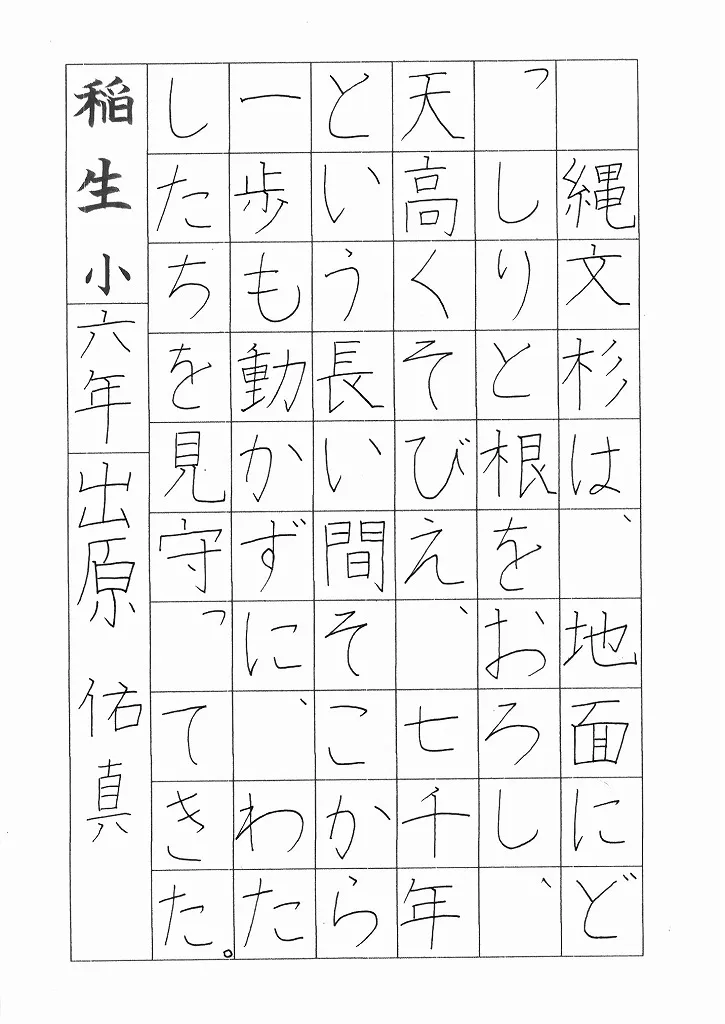 縄文杉は、地面にど
っしりと根をおろし、
天高くそびえ、七千年
という長い間そこから
一歩もも動かずに、わた
したちを見守ってきた。
稲生小六年出原佑真